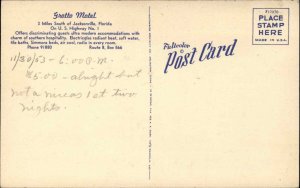 Gratto Motel
5 Miles South of Jacksonville, Florida
On U. S. Highway No. 1
Offers discriminating guests ultra modern accommodations with
charm of southern hospitality. Electriglas radiant heat, soft water,
tile baths, Simmons beds, air cool, radio in every room.
Phone 91181 Route 5, Box 866
11/30/53 - 6:00 P.M.
$5.00 - alright but
not as nice as last two
nights.
Post Card
PLACE
STAMP
HERE
MADE IN U.S.A.